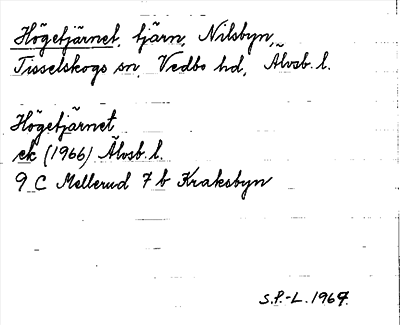 Högetjärnet, tjärn, Nilsbyn,
Tisselskogs sn, Vedbo hd, Älvsb. l.
Högetjärnet
ek (1966) Älvsb. l.
9 C Mellerud 7 b Kraksbyn
S.P.-L. 1967.